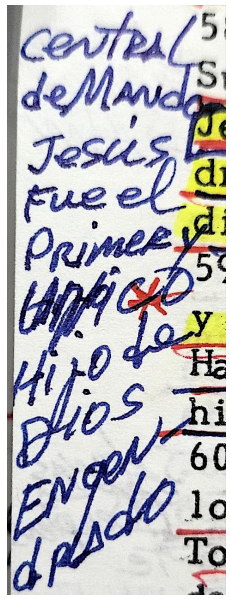 CENTRAL
de MANdo
Jesús
Fue el
Primer y
UNICO
Hijo de
Dios
ENGEN
drado
58
Je
di
59
y
Ha
hi
60
lo
To